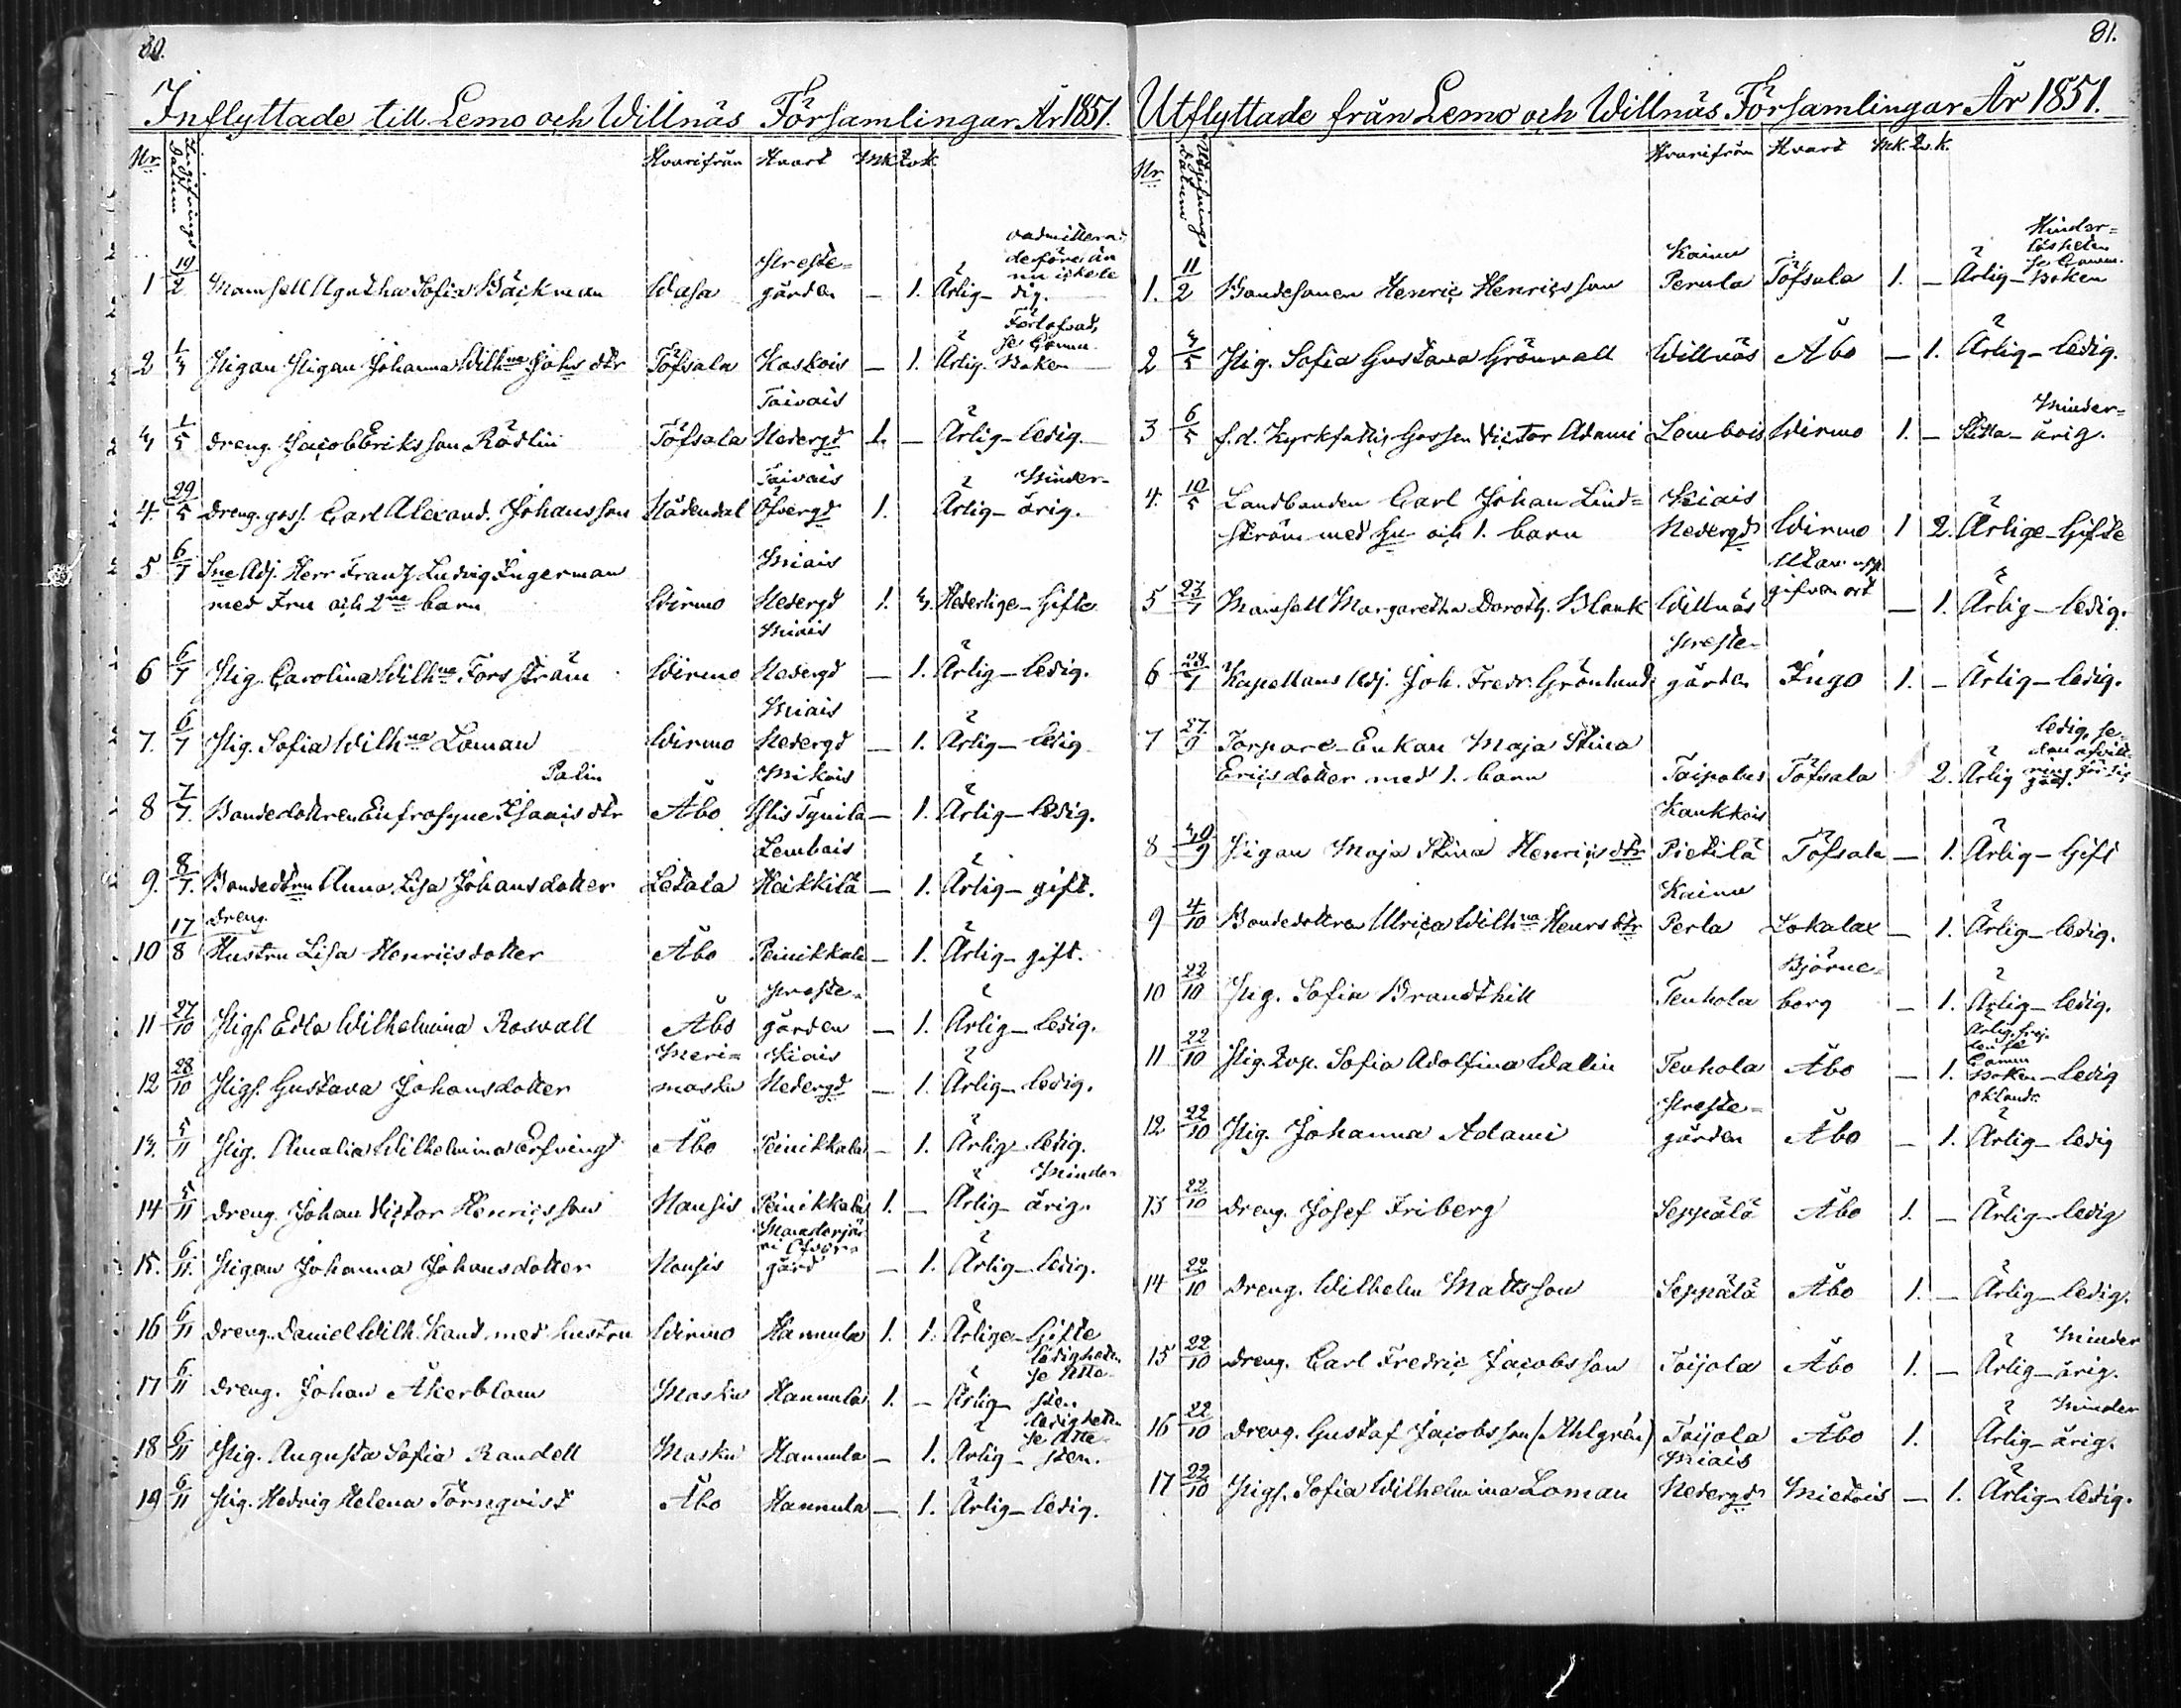 80.
Inflyttade till Lemo och Willnäs Församlingar År 1851.
Nr Ingifnings datum Hvarifrån Hvart Mk. Qvk.
1 19/2 Mamsell Agatha Sofia Bäckman Wasa Prestegården — 1. Ärlig
2 1/3 Pigan Pigan Johanna Wilhna Johs dtr Töfsala Kaskois — 1. Ärlig. Förlofvad, se Comm. Boken
3 1/5 Dreng. Jacob Eriksson Rödlin Töfsala Taivais Nedergd 1. — Ärlig — ledig.
4. 29/5 Dreng. goss. Carl Alexand. Johansson Nådendal Taivais Öfvergd 1. Ärlig — Minderårig.
5 6/7 Sne Adj. Herr Franz Ludvig Ingerman
med Fru och 2ne barn Wirmo Niais Nedergd 1. 3. Hederlige — Gifte
6 6/7 Pig. Carolina Wilhna Forsström Wirmo Niais Nedergd — 1. Ärlig — ledig.
7. 6/7 Pig. Sofia Wilhna Loman Wirmo Niais Nedergd — 1. Ärlig — ledig
8 7/7. Bondedottren Eufrosyne Isaacs dtr Palin Åbo — 1. Ärlig — ledig.
9. 8/7. Bondedtrn Anna Lisa Johansdotter Letala Lembois Heikkilä — 1. Ärlig — gift.
10 17/8 Dreng. Hustru Lisa Henricsdotter Åbo Peinikkala — 1. Ärlig — gift.
11 27/10 Pigs. Edla Wilhelmina Rosvall Åbo Prestegården — 1. Ärlig — ledig.
12 28/10 Pigs. Gustava Johansdotter Merimasku Niais Nedergd — 1. Ärlig — ledig.
13. 5/11 Pig. Amalia Wilhelmina Erfving Åbo Peinikkala — 1. Ärlig — ledig.
14 5/11 Dreng. Johan Victor Henricsson Nousis Peinikkala 1. — Ärlig — Minderårig.
15. 6/11. Pigan Johanna Johansdotter Nousis Öfvergård — 1. Ärlig — ledig.
16 6/11 Dreng. Daniel Wilh. Sand med hustru Wirmo Hannula 1. 1. Ärlige — Gifte
17 6/11 Dreng. Johan Åkerblom Masku Hannula 1. — Ärlig — ledigheten se Attesten
18 6/11 Pig. Augusta Sofia Randell Masku Hannula — 1. Ärlig — ledigheten se Attesten.
19 6/11 Pig. Hedvig Helena Törnqvist Åbo Hannula — 1. Ärlig — ledig.
81.
Utflyttade från Lemo och Willnäs Församlingar År 1851.
Nr Utgifnings datum Hvarifrån Hvart Mk. Qv. k.
1. 11/2 Bondesonen Henric Henricsson Kaimu Perula Töfsala 1. — Ärlig — Hinderlösheten se Comm. Boken
2 3/5 Pig. Sofia Gustava Grönvall Willnäs Åbo — 1. Ärlig — ledig.
3 6/5 f.d. Kyrkfattig Gossen Victor Adami Lembois Wirmo 1. — Stilla — Minderårig.
4. 10/5 Landbonden Carl Johan Lindström med Hu och 1. barn Niais Nedergd Wirmo 1 2. Ärlige — Gifte
5 23/7 Mamsell Margaretha Doroth. Blank Willnäs Utan uppgifven ort — 1. Ärlig — ledig.
6 Kapellans Adj. Joh. Fredr. Grönlund Prestegården Ingo 1. — Ärlig — ledig.
7 27/9 Torpare-Enkan Maja Stina
Ericsdotter med 1. barn Taipales Töfsala 2. Ärlig
8 30/9 Pigan Maja Stina Henricsdtr Kaukkois Pietilä Töfsala — 1. Ärlig — Gift
9 4/10 Bondedottren Ulrica Wilhna Henrs dtr Kaimu Perla Lokalax — 1. Ärlig — ledig.
10 22/10 Pig. Sofia Brandthill Tenhola Björneborg — 1. Ärlig — ledig.
11 22/10 Pig. Sofia Adolfina Wallin Tenhola Åbo — 1. — ledig
12 22/10 Pig. Johanna Adami Prestegården Åbo — 1. Ärlig — ledig
13 22/10 Dreng. Josef Friberg Seppälä Åbo 1. — Ärlig — ledig
14 22/10 Dreng. Wilhelm Mattsson Seppälä Åbo 1. — Ärlig — ledig.
15 22/10 Dreng. Carl Fredric Jacobsson Toijola Åbo 1. — Ärlig — Minderårig.
16 22/10 Dreng. Gustaf Jacobsson (Ahlgrén) Toijola Åbo 1. Ärlig — Minderårig.
17 22/10 Pigs. Sofia Wilhelmina Loman Niais Nedergd Mietois — 1. Ärlig — ledig.